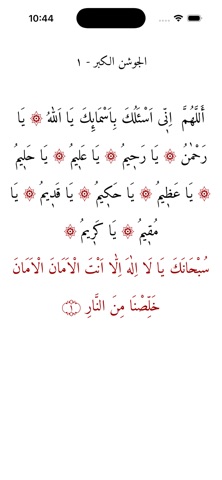 10:44
الجوشن الكبر - ١
أَللّٰهُمَّ اِنّٖى اَسْئَلُكَ بِاَسْمَائِكَ يَا اَللّٰهُ ۞ يَا
رَحْمٰنُ ۞ يَا رَحٖيمُ ۞ يَا عَلٖيمُ ۞ يَا حَلٖيمُ
۞ يَا عَظٖيمُ ۞ يَا حَكٖيمُ ۞ يَا قَدٖيمُ ۞ يَا
مُقٖيمُ ۞ يَا كَرٖيمُ ۞
سُبْحَانَكَ يَا لَا اِلٰهَ اِلَّا اَنْتَ الْاَمَانَ الْاَمَانَ
خَلِّصْنَا مِنَ النَّارِ ﴿١﴾